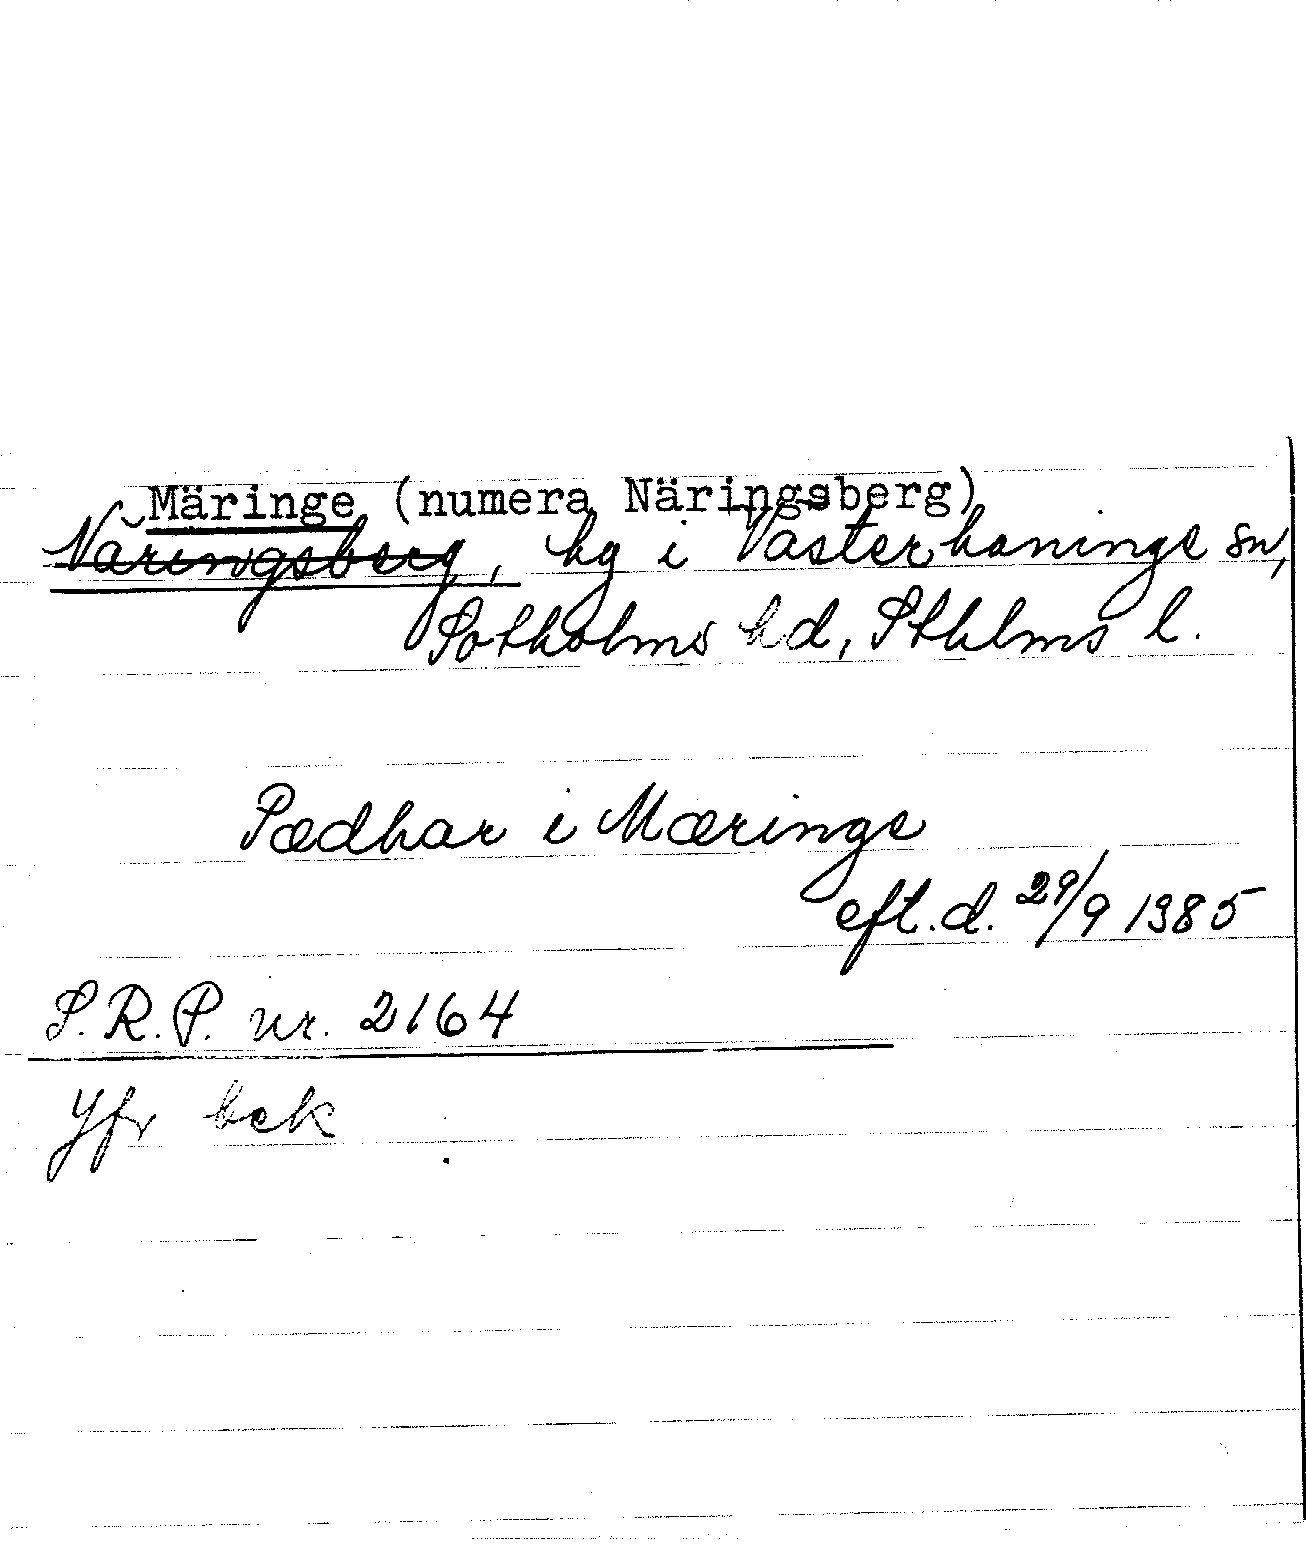 Märinge (numera Näringsberg)
Näringsberg, hg i Västerhaninge sn,
Sotholms hd, Sthlms l.
Pædhar i Mæringe
eft. d. 29/9 1385
S.R.P. nr. 2164
Jfr bek